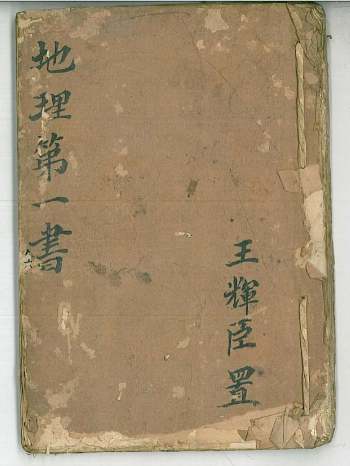 地理第一書
王輝臣置